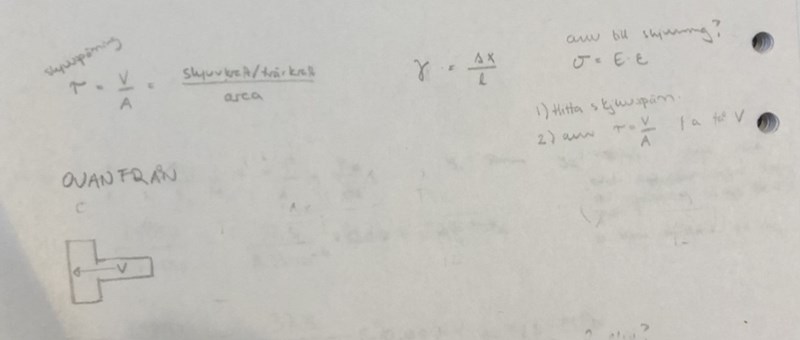 skjuvspänning
τ = V/A = skjuvkraft/tvärkraft / area
γ = Δx/L
till skjuvning?
σ = E·ε
1) Hitta skjuvspän.
2) τ = V/A V
OVANIFRÅN
V